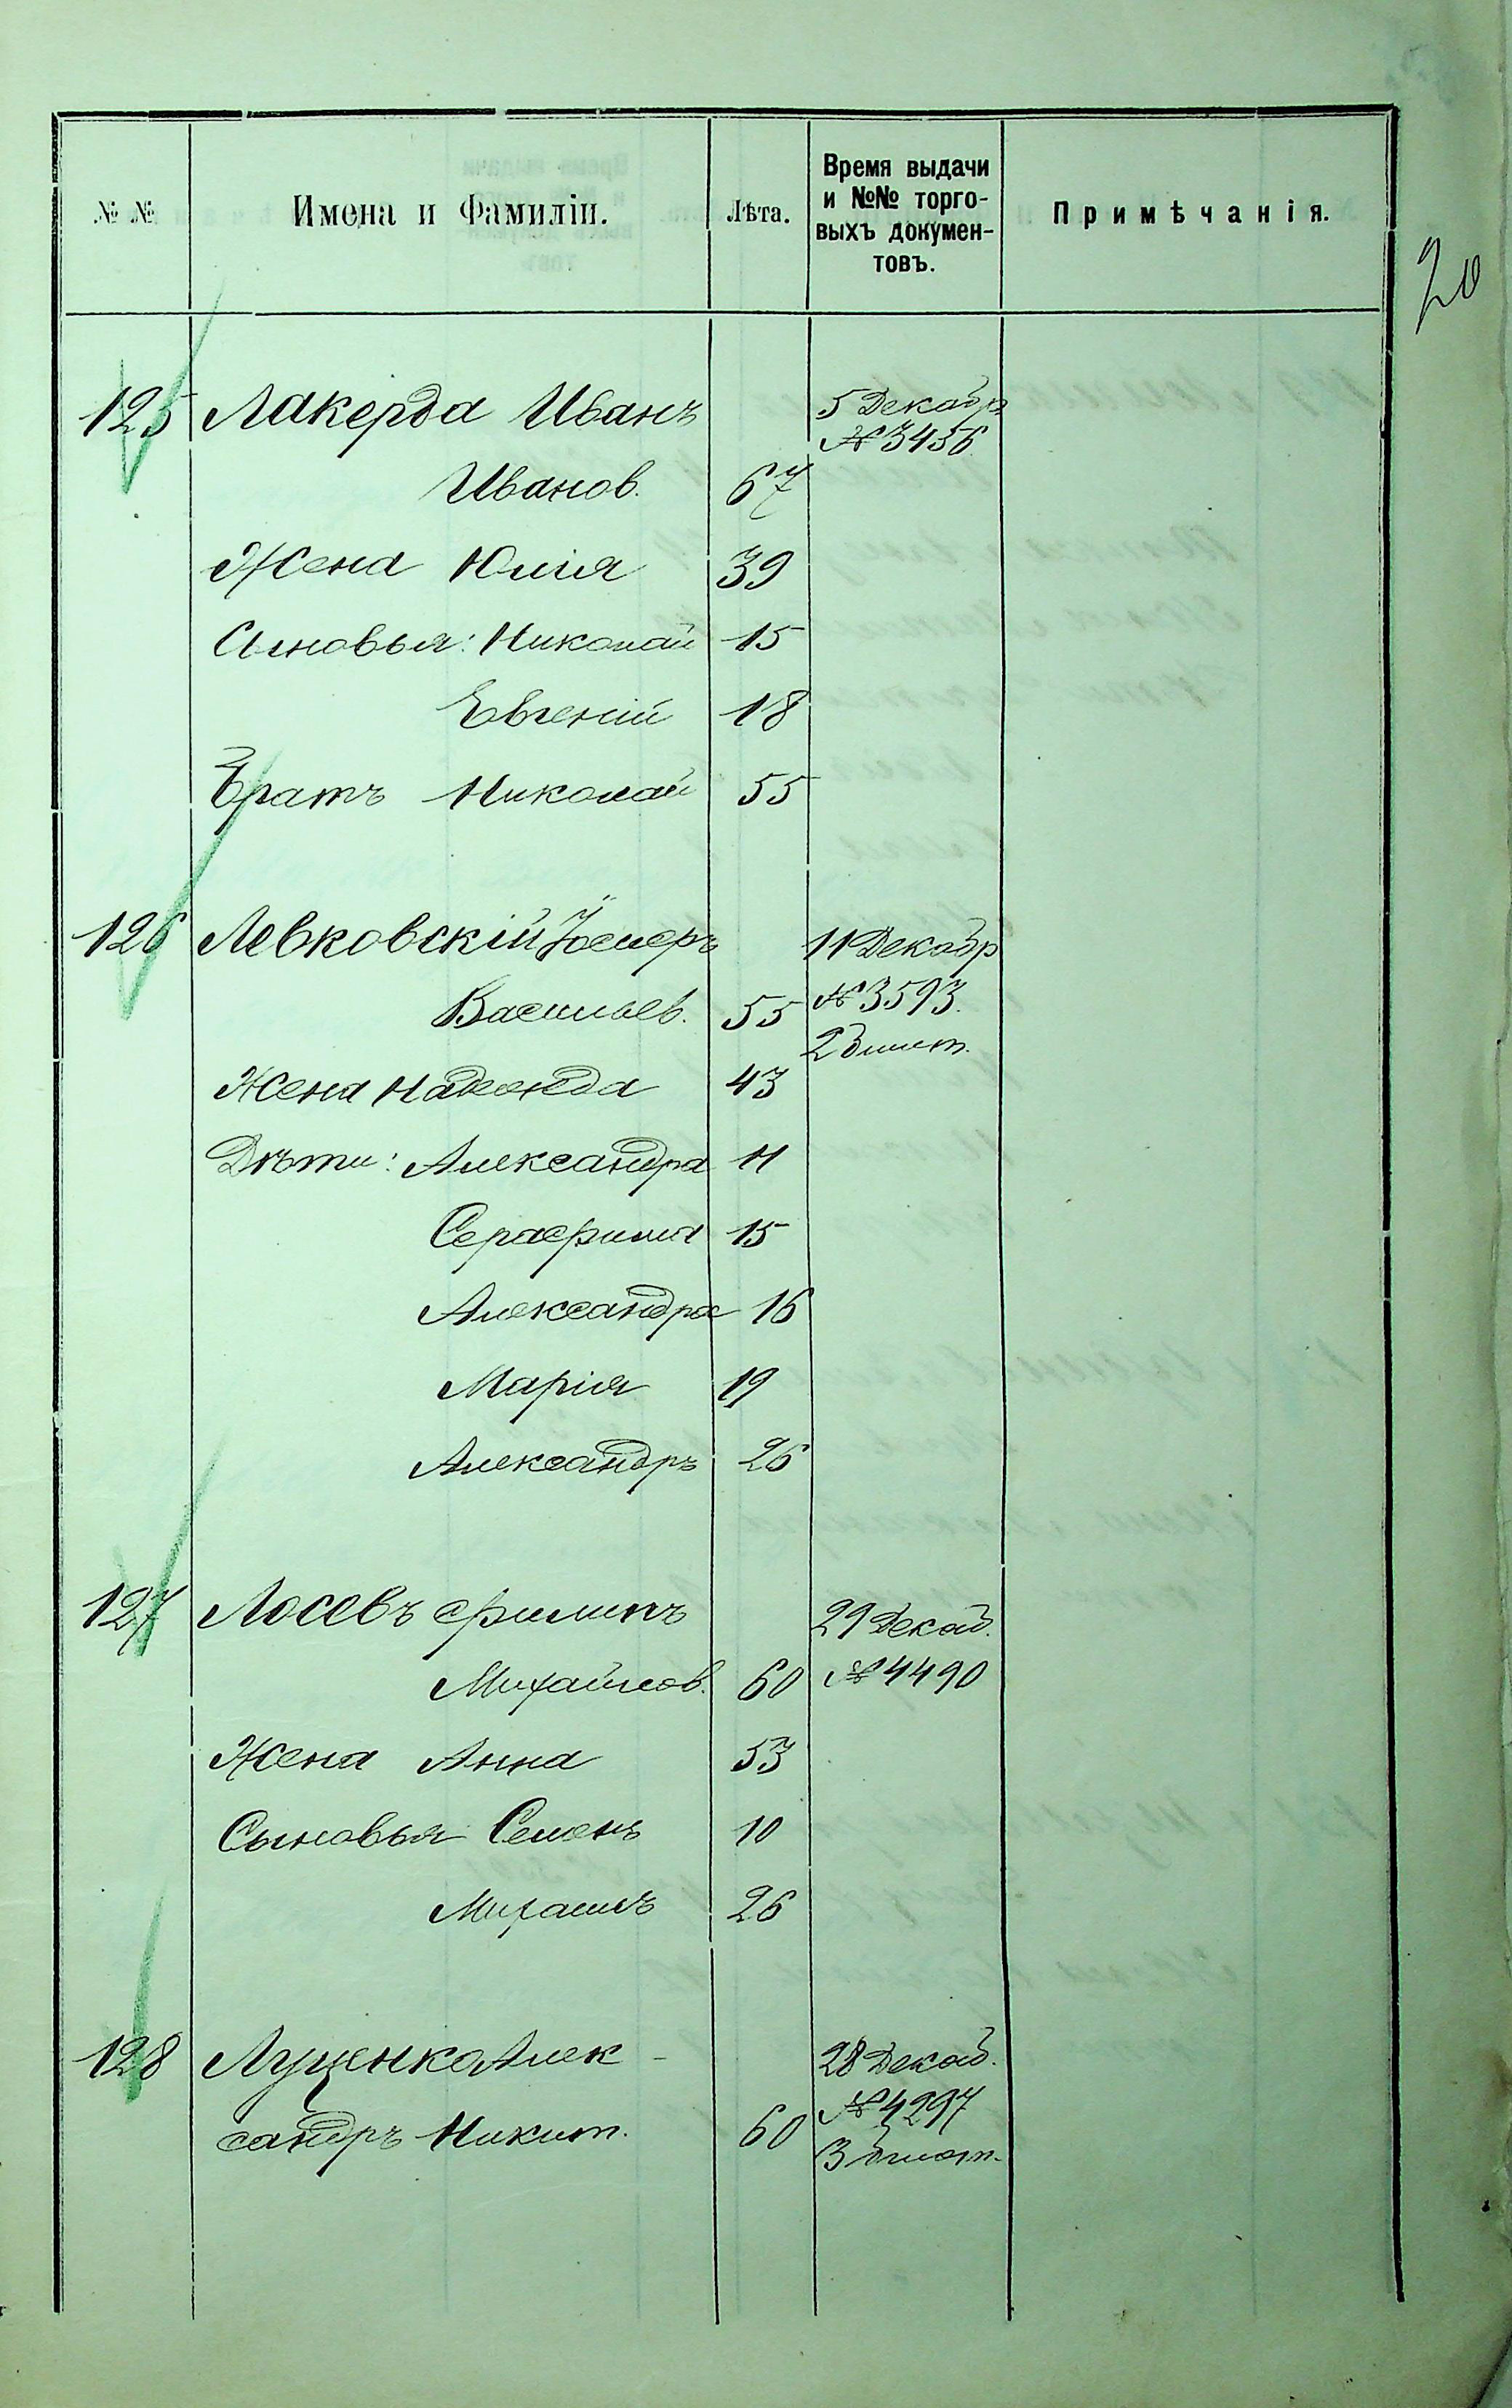 № № Имена и Фамиліи. Лѣта. Время выдачи и №№ торго-выхъ докумен-товъ. Примѣчанія.
20
125 Лакерда Иванъ 5 Декабр
№ 3456.
Иванов. 67
Жена Юлія 39
Сыновья: Николай 15
Евгеній 18
Братъ Николай 55
126 Левковскій 11 Декабр
Васильев. 55 № 3593.
2 билет.
Жена Надежда 43
Дѣти: Александра 11
Серафима 15
Александра 16
Марія 19
Александръ 26
127 Лосевъ Филипъ 29 Декаб.
Михайлов. 60 № 4490
Жена Анна 53
Сыновья Семенъ 10
Михаилъ 26
128 Луценко Алек- 28 Декаб.
№ 4297
сандръ Никит. 60 3 билет.